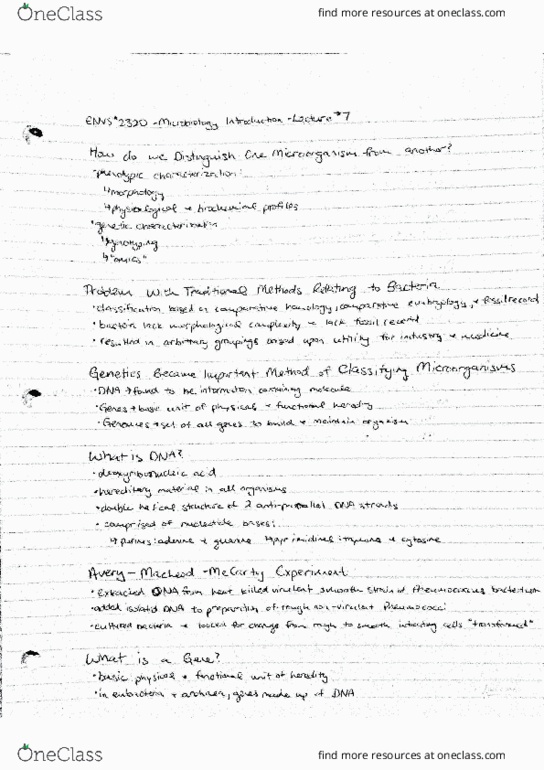 OneClass
find more resources at oneclass.com
ENVS*2320 - Microbiology Introduction - Lecture #7
How do we Distinguish One Microorganism from another?
• phenotypic characterization:
↳ morphology
↳ physiological + biochemical profiles
• genetic characterization
↳ genotyping
↳ "omics"
Problem With Traditional Methods Relating to Bacteria
• classification based on comparative homology, comparative embryology, + fossil record
• bacteria lack morphological complexity + lack fossil record
• resulted in arbitrary groupings based upon utility for industry + medicine
Genetics Became Important Method of Classifying Microorganisms
• DNA → found to be information containing molecule
• Genes → basic unit of physical + functional heredity
• Genomes → set of all genes to build + maintain organism
What is DNA?
• deoxyribonucleic acid
• hereditary material in all organisms
• double helical structure of 2 anti-parallel DNA strands
• comprised of nucleotide bases:
↳ purines: adenine + guanine ↳ pyrimidines: thymine + cytosine
Avery - Macleod - McCarty Experiment
• extracted DNA from heat killed virulent smooth strain of Pneumococcus bacterium
• added isolated DNA to preparation of rough non-virulent Pneumococci
• cultured bacteria + looked for change from rough to smooth infecting cells "transformed"
What is a Gene?
• basic physical + functional unit of heredity
• in eubacteria + archaea, genes made up of DNA
OneClass
find more resources at oneclass.com